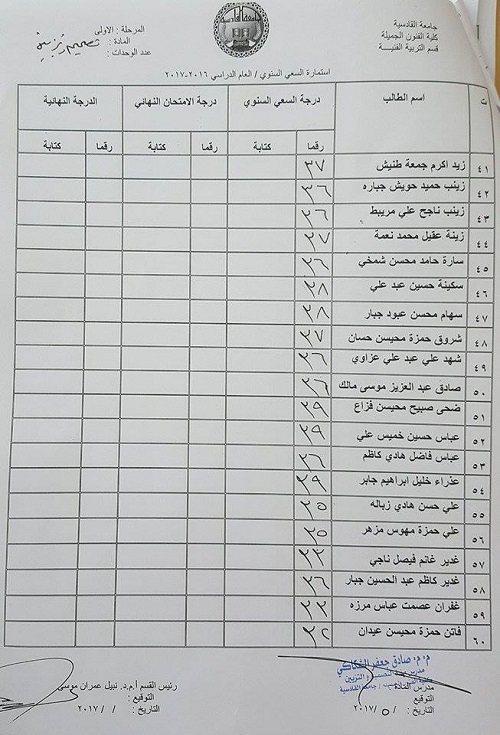 جامعة القادسية
كلية الفنون الجميلة
قسم التربية الفنيـــة
المرحلة : الاولى
المادة : تصميم وتزيين
عدد الوحدات :
استمارة السعي السنوي / العام الدراسي ٢٠١٦-٢٠١٧
ت اسم الطالب درجة السعي السنوي درجة الامتحان النهائي الدرجة النهائية
رقما كتابة رقما كتابة رقما كتابة
٤١ زيد اكرم جمعة طنيش ٣٧
٤٢ زينب حميد حويش جباره ٣٦
٤٣ زينب ناجح علي مريبط ٣٦
٤٤ زينة عقيل محمد نعمة ٣٧
٤٥ سارة حامد محسن شمخي ٣٦
٤٦ سكينة حسين عبد علي ٣٨
٤٧ سهام محسن عبود جبار ٣٨
٤٨ شروق حمزة محيسن حسان ٣٧
٤٩ شهد علي عبد علي عزاوي ٣٦
٥٠ صادق عبد العزيز موسى مالك ٣٦
٥١ ضحى صبيح محيسن فزاع ٣٩
٥٢ عباس حسين خميس علي ٣٩
٥٣ عباس فاضل هادي كاظم ٣٦
٥٤ عذراء خليل ابراهيم جابر ٣٩
٥٥ علي حسن هادي زباله ٣٥
٥٦ علي حمزة مهوس مزهر ٣٥
٥٧ غدير غانم فيصل ناجي ٣٣
٥٨ غدير كاظم عبد الحسين جبار ٣٦
٥٩ غفران عصمت عباس مرزه ٣٣
٦٠ فاتن حمزة محيسن عيدان ٣٢
م.م. صادق جعفر
مدرس المادة
التوقيع :
التاريخ : / ٥ /٢٠١٧
رئيس القسم أ.م.د. نبيل عمران موسى
التوقيع :
التاريخ : / /٢٠١٧